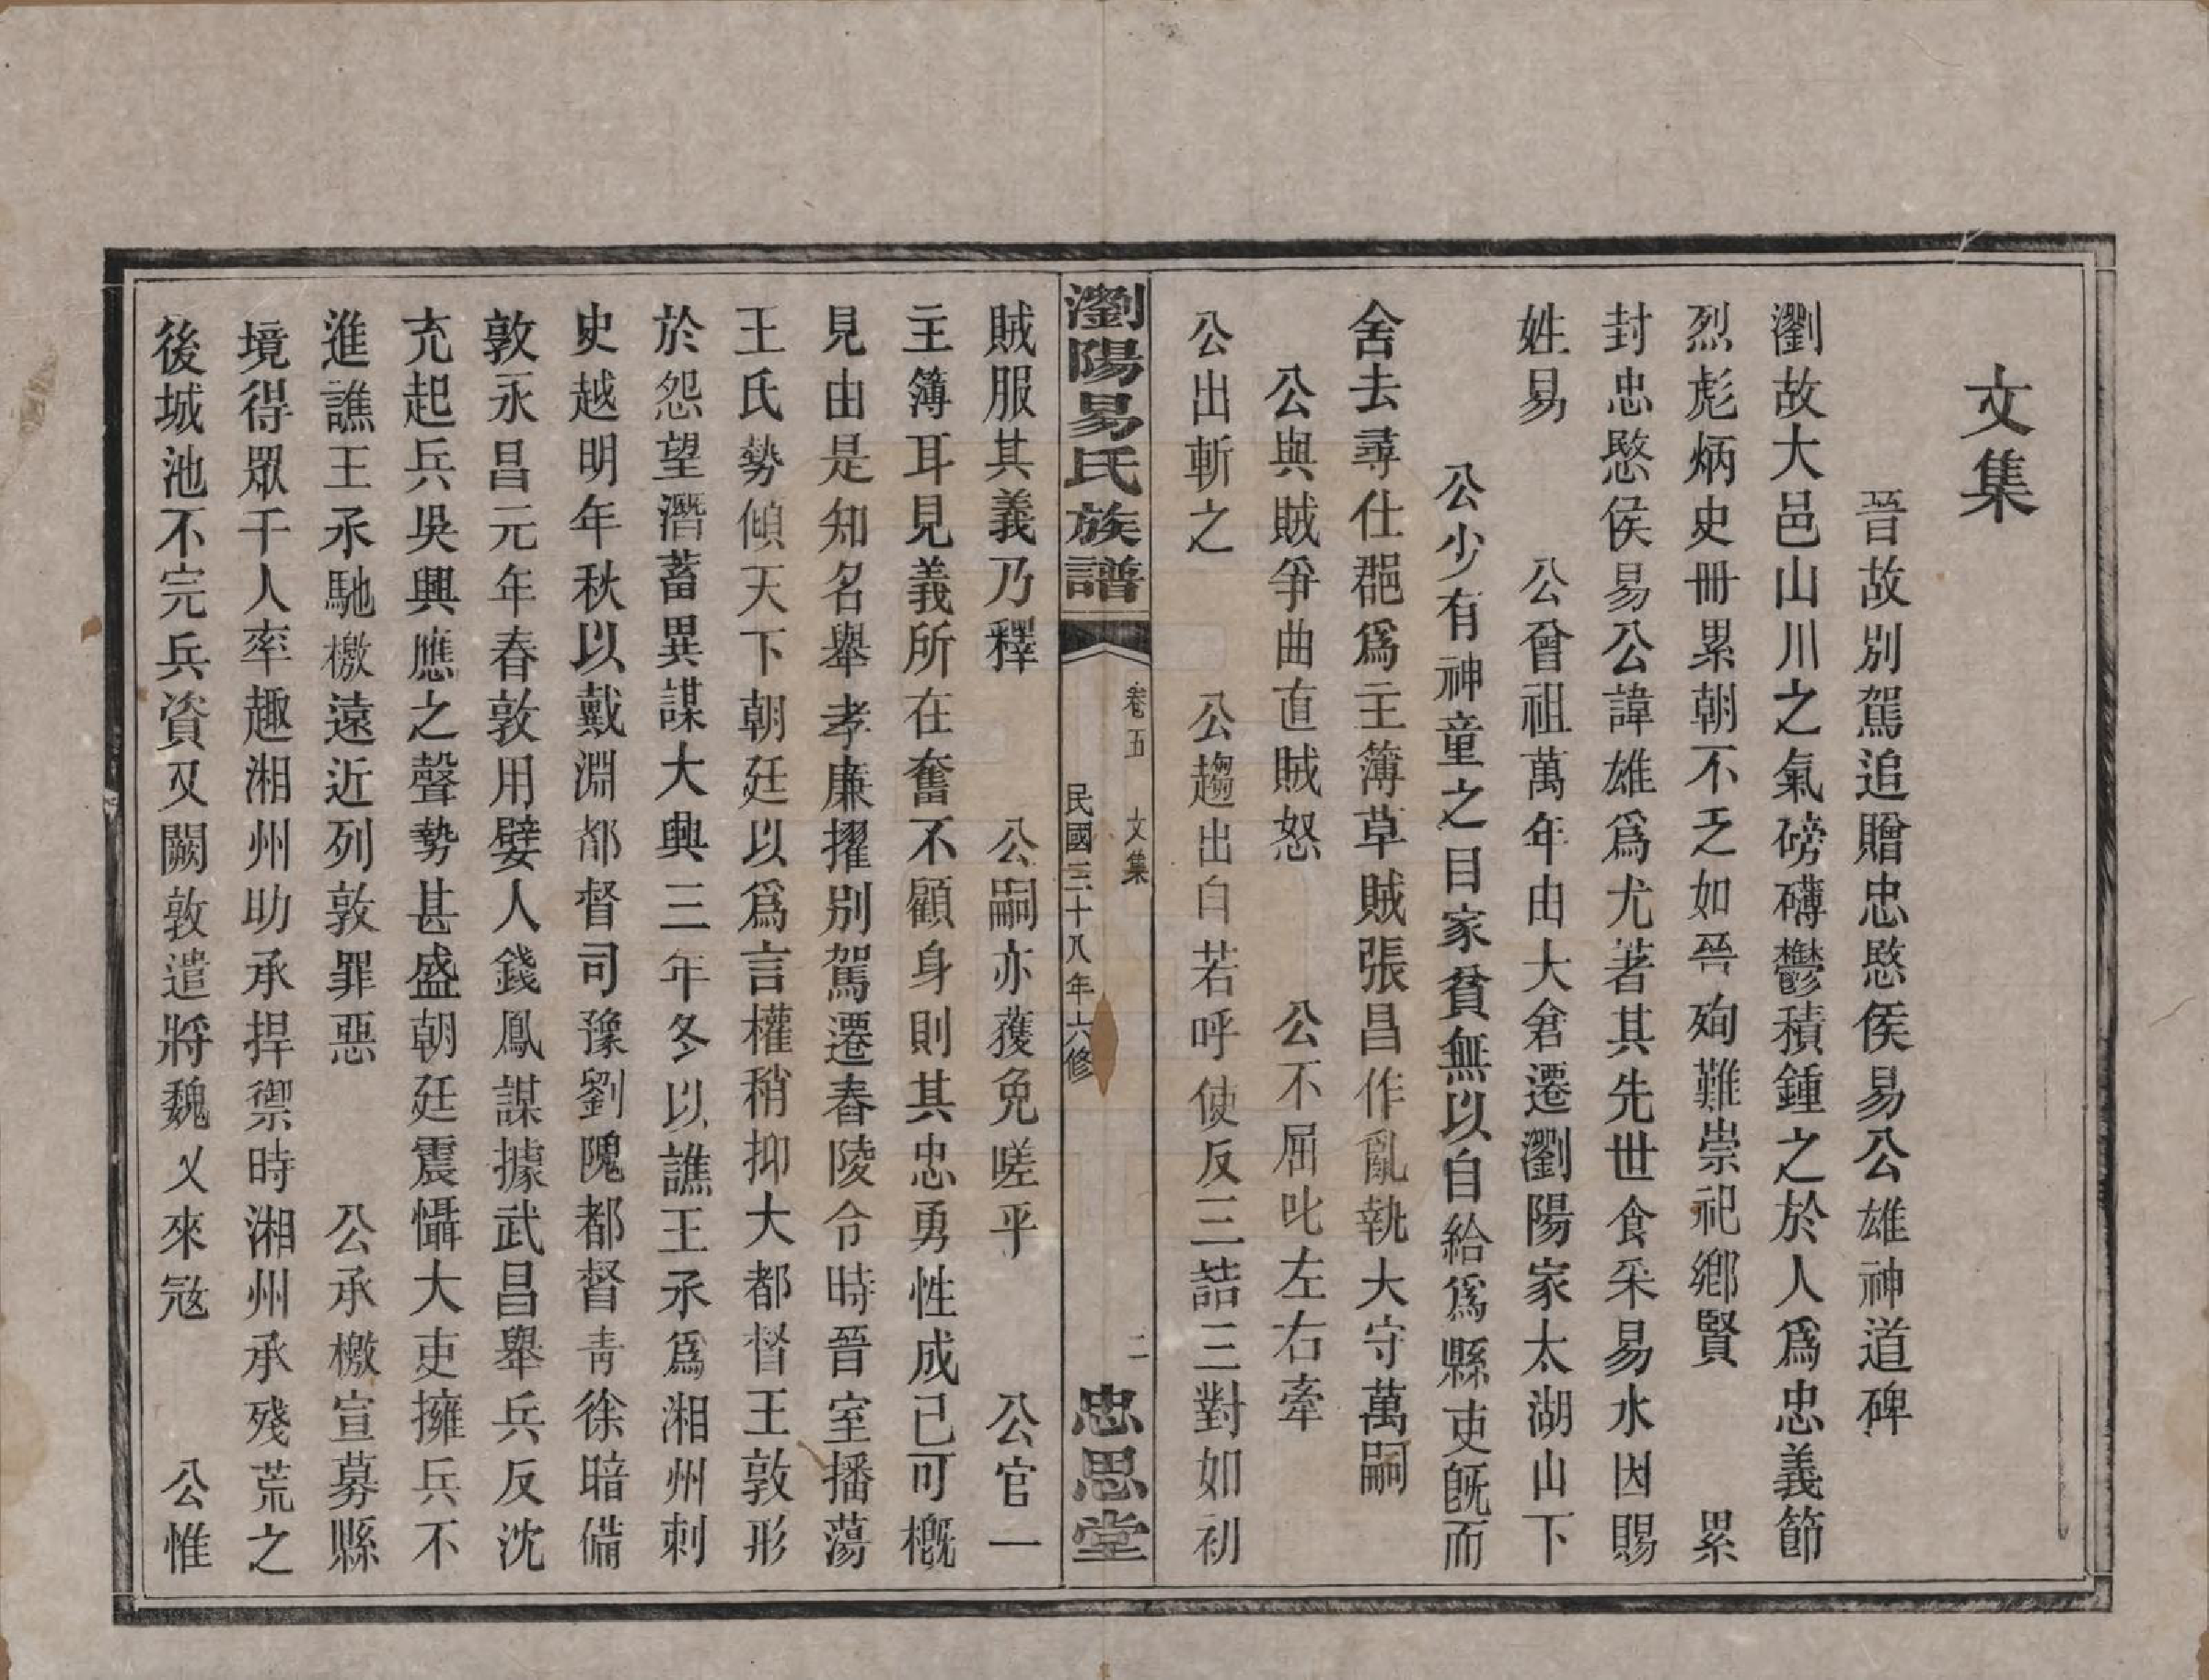 文集
晉故別駕追贈忠愍侯易公雄神道碑
瀏故大邑山川之氣磅礴鬱積鍾之於人爲忠義節
烈彪炳史冊累朝不乏如晉殉難崇祀鄉賢　累
封忠愍侯易公諱雄爲尤著其先世食采易水因賜
姓易　公曾祖萬年由大倉遷瀏陽家太湖山下
公少有神童之目家貧無以自給爲縣吏旣而
舍去尋仕郡爲主簿草賊張昌作亂執大守萬嗣
公與賊爭曲直賊怒　公不屈叱左右牽
公出斬之　公趨出自若呼使反三詰三對如初
瀏陽易氏族譜　卷五　文集　民國三十八年六修　二　忠思堂
賊服其義乃釋　公嗣亦獲免嗟乎　公官一
主簿耳見義所在奮不顧身則其忠勇性成已可槪
見由是知名舉孝廉擢別駕遷舂陵令時晉室播蕩
王氏勢傾天下朝廷以爲言權稍抑大都督王敦形
於怨望潛蓄異謀大興三年冬以譙王承爲湘州刺
史越明年秋以戴淵都督司豫劉隗都督靑徐暗備
敦永昌元年春敦用嬖人錢鳳謀據武昌舉兵反沈
充起兵吳興應之聲勢甚盛朝廷震懾大吏擁兵不
進譙王承馳檄遠近列敦罪惡　公承檄宣募縣
境得眾千人率趣湘州助承捍禦時湘州承殘荒之
後城池不完兵資又闕敦遣將魏乂來寇　公惟